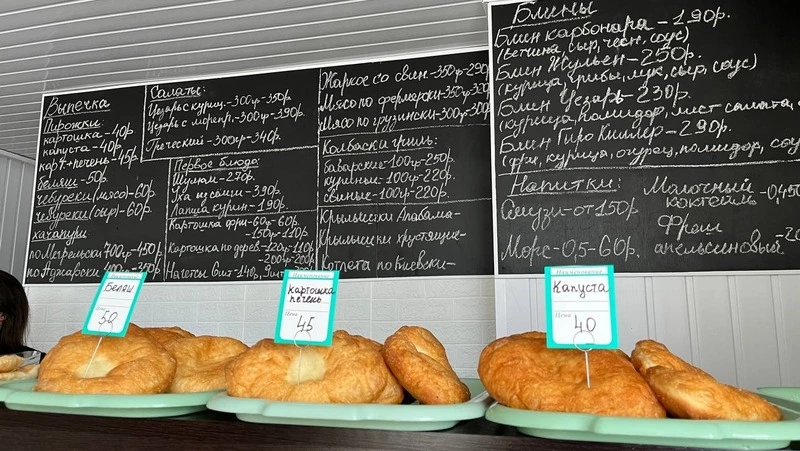 Выпечка
Пирожки:
картошка-40р
капуста-40р.
карт.печень-45р.
беляш-50р.
чебуреки(мясо)-60р.
чебуреки(сыр)-60р.
хачапури
по Мегрельски 700гр-450р
по Аджарски
Салаты:
Цезарь с куриц.-300гр-350р.
Цезарь с морепр.-300гр-390р.
Греческий-300гр-340р.
Первое блюдо:
Шулюм-270р.
Уха из сёмги-390р.
Лапша курин-190р.
Картошка фри-60гр-60р.
150гр-110р.
Картошка по дерев.-120гр-110р
200гр-200р
Жаркое со свин-350гр-290р
Мясо по фермерски-350гр-
Мясо по грузински-300гр-
Колбаски гриль:
баварские-100гр-250р.
куриные-100гр-220р.
свиные-100гр-220р.
Крылышки Алабама-
Крылышки хрустящие-
Котлета по Киевски-
Блины
Блин карбонара-190р.
(ветчина, сыр, чесн, соус)
Блин Жульен-250р.
(курица, грибы, лук, сыр, соус)
Блин Цезарь-230р.
(курица, помидор, лист салата,
Блин Гиро Киллер-290р.
(фри, курица, огурец, помидор, соус
Напитки:
Смузи-от150р
Морс-0,5-60р.
Молочный
коктейль
Фреш
апельсиновый
Беляш
Цена
50
Картошка
печень
Цена
45
Капуста
Цена
40